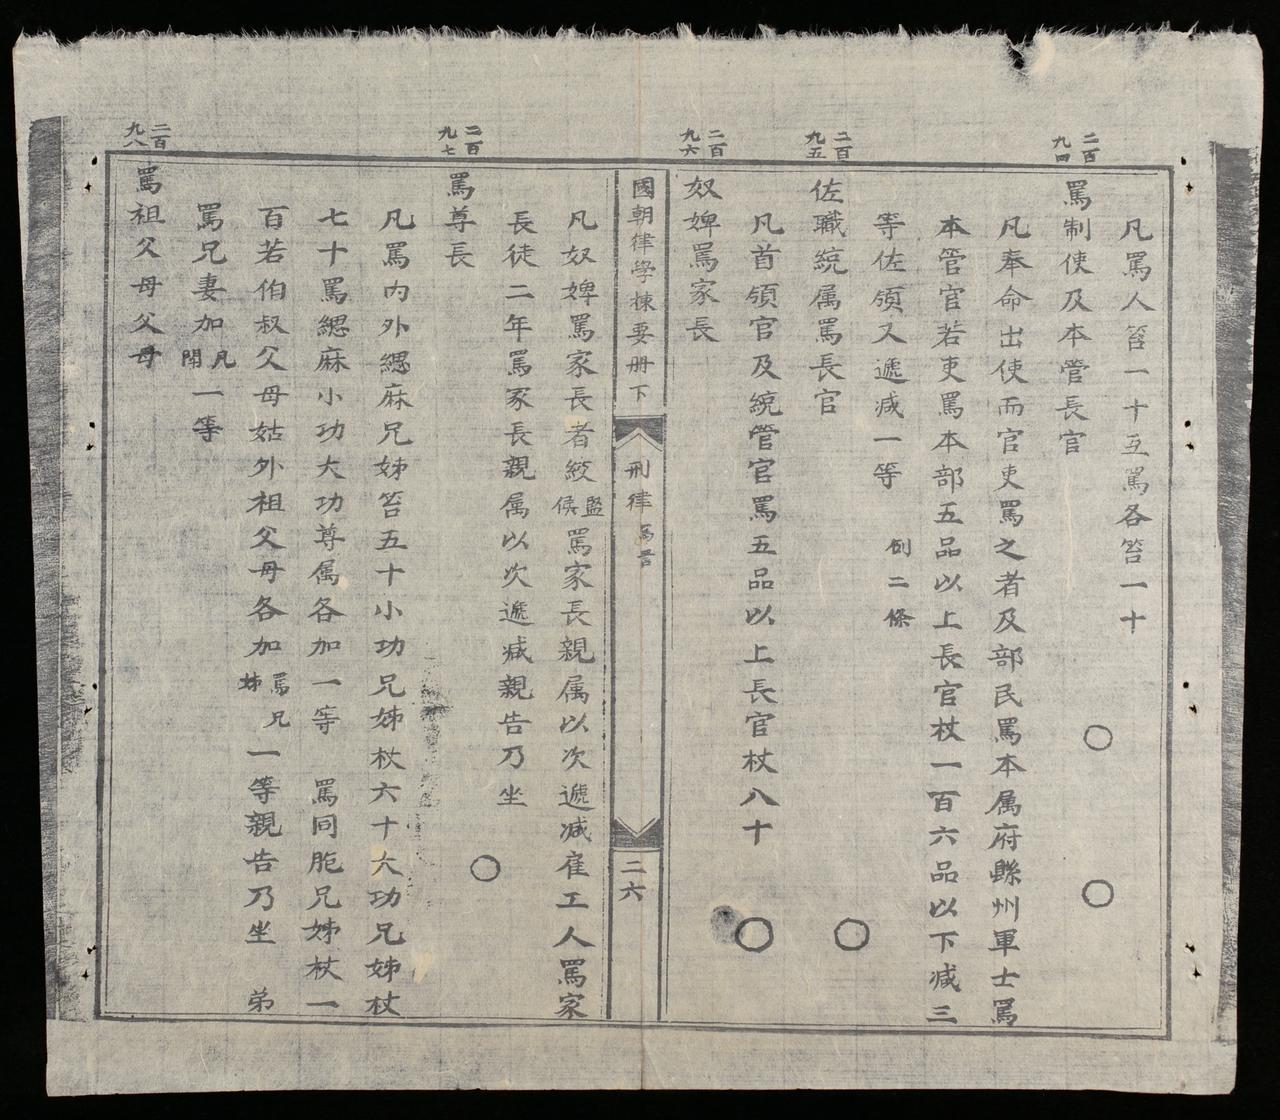 凡罵人笞一十互罵各笞一十
二百九四
罵制使及本管長官
凡奉命出使而官吏罵之者及部民罵本属府縣州軍士罵
本管官若吏罵本部五品以上長官杖一百六品以下减三
等佐領又遞减一等 例二條
二百九五
佐職統属罵長官
凡首領官及統管官罵五品以上長官杖八十
二百九六
奴婢罵家長
國朝律學揀要册下
刑律罵詈
二六
凡奴婢罵家長者絞監候罵家長親属以次遞减雇工人罵家
長徒二年罵家長親属以次遞减親告乃坐
二百九七
罵尊長
凡罵内外緦麻兄姊笞五十小功兄姊杖六十大功兄姊杖
七十罵緦麻小功大功尊属各加一等 罵同胞兄姊杖一
百若伯叔父母姑外祖父母各加罵兄姊一等親告乃坐 弟
罵兄妻加凡鬧一等
二百九八
罵祖父母父母